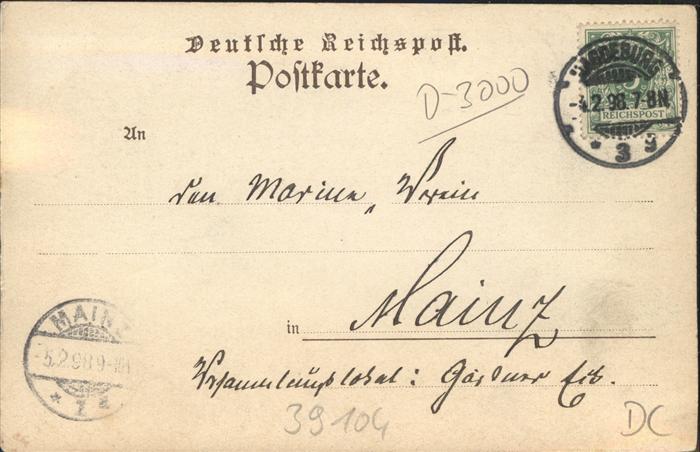 Deutsche Reichspost.
Postkarte.
D-3000
MAGDEBURG
4.2.98.7-8N.
* 3 g
REICHSPOST
An
den Marine-Verein
in Mainz
Versammlungslokal: Gärtner
MAINZ
-5.2.98 9-10
* 1
39104
DC